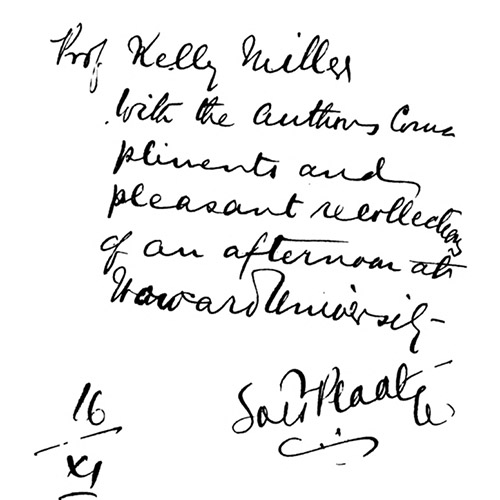 Prof Kelly Miller
With the authors Com
pliments and
pleasant recollections
of an afternoon at
Howard University
Sol T Plaatje
16
XI